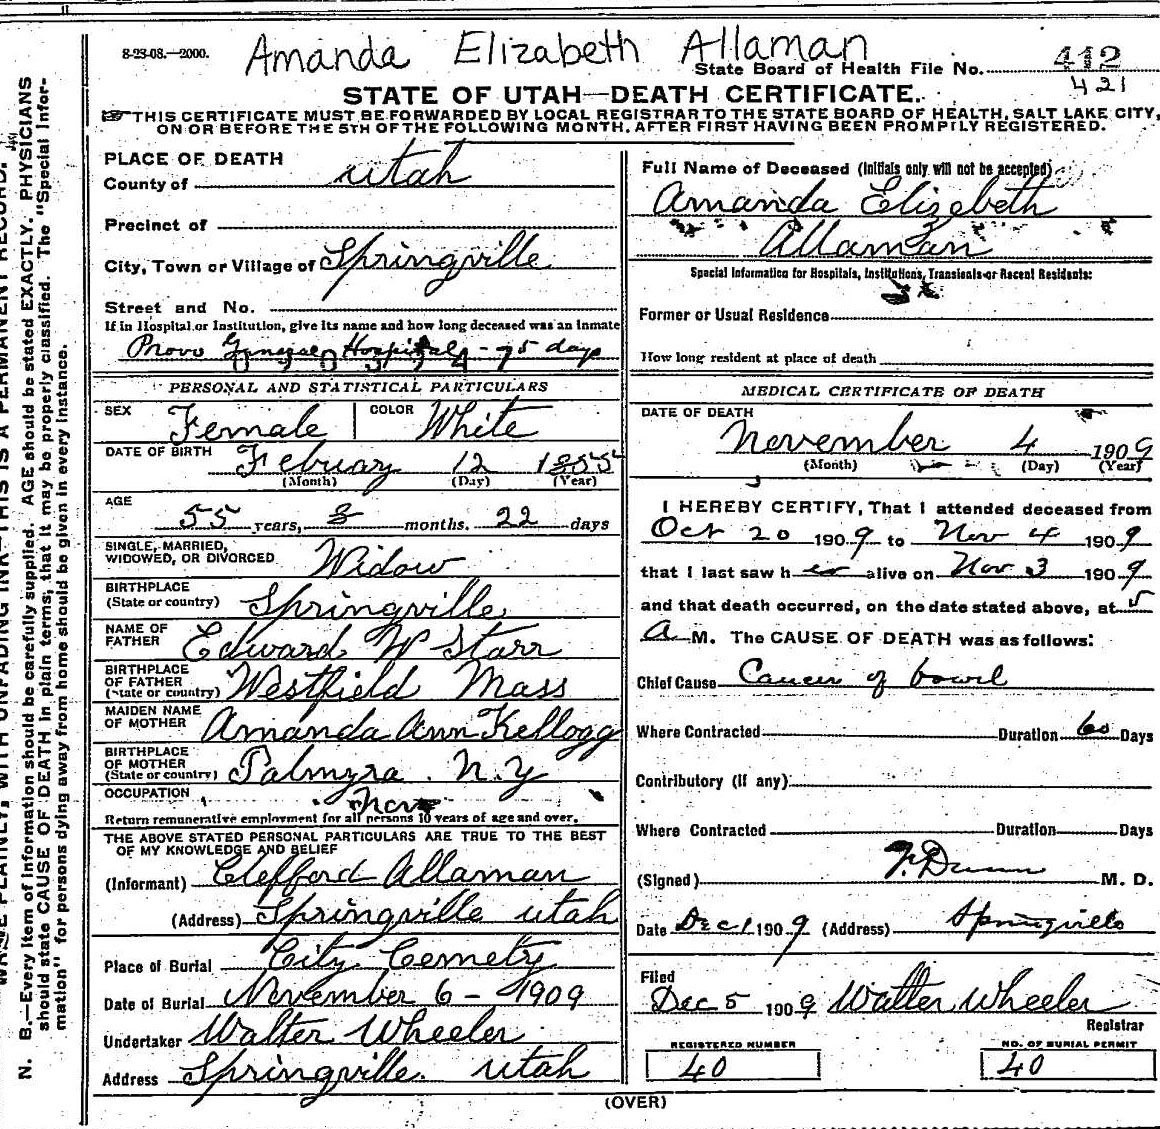 8-23-08.—2000.
Amanda Elizabeth Allaman
State Board of Health File No. 412
421
STATE OF UTAH—DEATH CERTIFICATE.
THIS CERTIFICATE MUST BE FORWARDED BY LOCAL REGISTRAR TO THE STATE BOARD OF HEALTH, SALT LAKE CITY,
ON OR BEFORE THE 5TH OF THE FOLLOWING MONTH, AFTER FIRST HAVING BEEN PROMPTLY REGISTERED.
PLACE OF DEATH
County of Utah
Precinct of
City, Town or Village of Springville
Street and No.
If in Hospital or Institution, give its name and how long deceased was an inmate
Provo General Hospital - 75 days
PERSONAL AND STATISTICAL PARTICULARS
SEX Female COLOR White
DATE OF BIRTH Febuary 12 1855
(Month) (Day) (Year)
AGE
55 years, 8 months. 22 days
SINGLE, MARRIED,
WIDOWED, OR DIVORCED Widow
BIRTHPLACE
(State or country) Springville
NAME OF
FATHER Edward W Starr
BIRTHPLACE
OF FATHER
(State or country) Westfield Mass
MAIDEN NAME
OF MOTHER Amanda Ann Kellogg
BIRTHPLACE
OF MOTHER
(State or country) Palmyra. N.Y
OCCUPATION
Return remunerative employment for all persons 10 years of age and over.
THE ABOVE STATED PERSONAL PARTICULARS ARE TRUE TO THE BEST
OF MY KNOWLEDGE AND BELIEF
(Informant) Clefford Allaman
(Address) Springville Utah
Place of Burial City Cemetry
Date of Burial November 6 - 1909
Undertaker Walter Wheeler
Address Springville. Utah
Full Name of Deceased (Initials only will not be accepted)
Amanda Elizebeth
Allaman
Special Information for Hospitals, Institutions, Transients or Recent Residents:
Former or Usual Residence
How long resident at place of death
MEDICAL CERTIFICATE OF DEATH
DATE OF DEATH
November 4 1909
(Month) (Day) (Year)
I HEREBY CERTIFY, That I attended deceased from
Oct 20 1909 to Nov 4 1909
that I last saw her alive on Nov 3 1909
and that death occurred, on the date stated above, at 5
A M. The CAUSE OF DEATH was as follows:
Chief Cause Cancer of bowel
Where Contracted Duration 60 Days
Contributory (if any)
Where Contracted Duration Days
(Signed) F. Dunn M. D.
Date Dec 1 1909 (Address) Springville
Filed
Dec 5 1909 Walter Wheeler
Registrar
REGISTERED NUMBER
40
NO. OF BURIAL PERMIT
40
(OVER)
WRITE PLAINLY, WITH UNFADING INK—THIS IS A PERMANENT RECORD.
N. B.—Every item of information should be carefully supplied. AGE should be stated EXACTLY. PHYSICIANS
should state CAUSE OF DEATH in plain terms, that it may be properly classified. The "Special Infor-
mation" for persons dying away from home should be given in every instance.